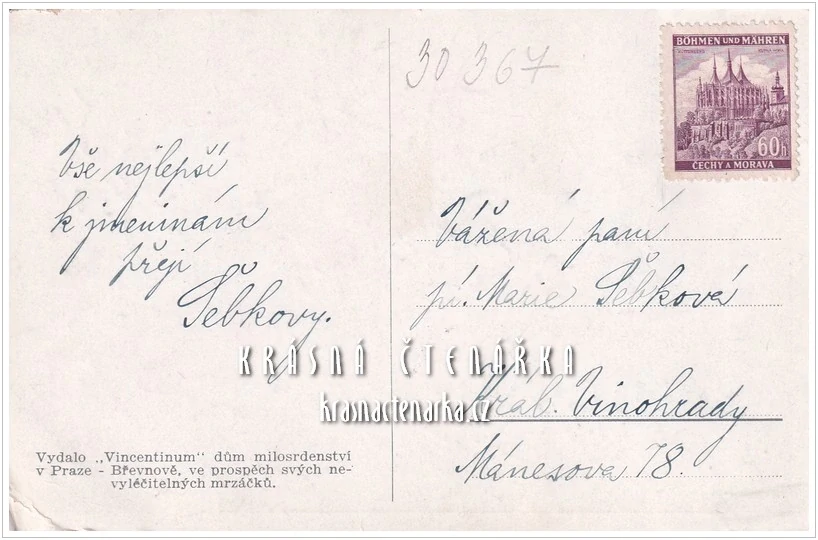 30367
BÖHMEN UND MÄHREN
60h
ČECHY A MORAVA
Vše nejlepší
k jmeninám
přejí
Šebkovy.
Vážená paní
pí. Marie Šebková
Král. Vinohrady
Mánesova 78.
KRÁSNÁ ČTENÁŘKA
krasnactenarka.cz
Vydalo „Vincentinum" dům milosrdenství
v Praze - Břevnově, ve prospěch svých ne-
vyléčitelných mrzáčků.